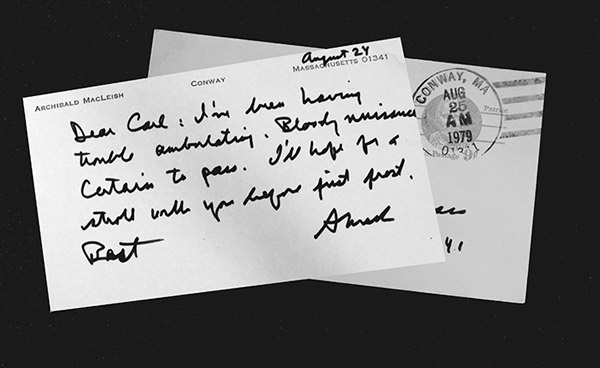 August 24
ARCHIBALD MACLEISH CONWAY MASSACHUSETTS 01341
Dear Carl: I've been having
trouble ambulating. Bloody nuisance
Certain to pass. I'll hope for a
stroll with you before first frost.
Best
CONWAY, MA
AUG
25
AM
1979
Patriot
Postage